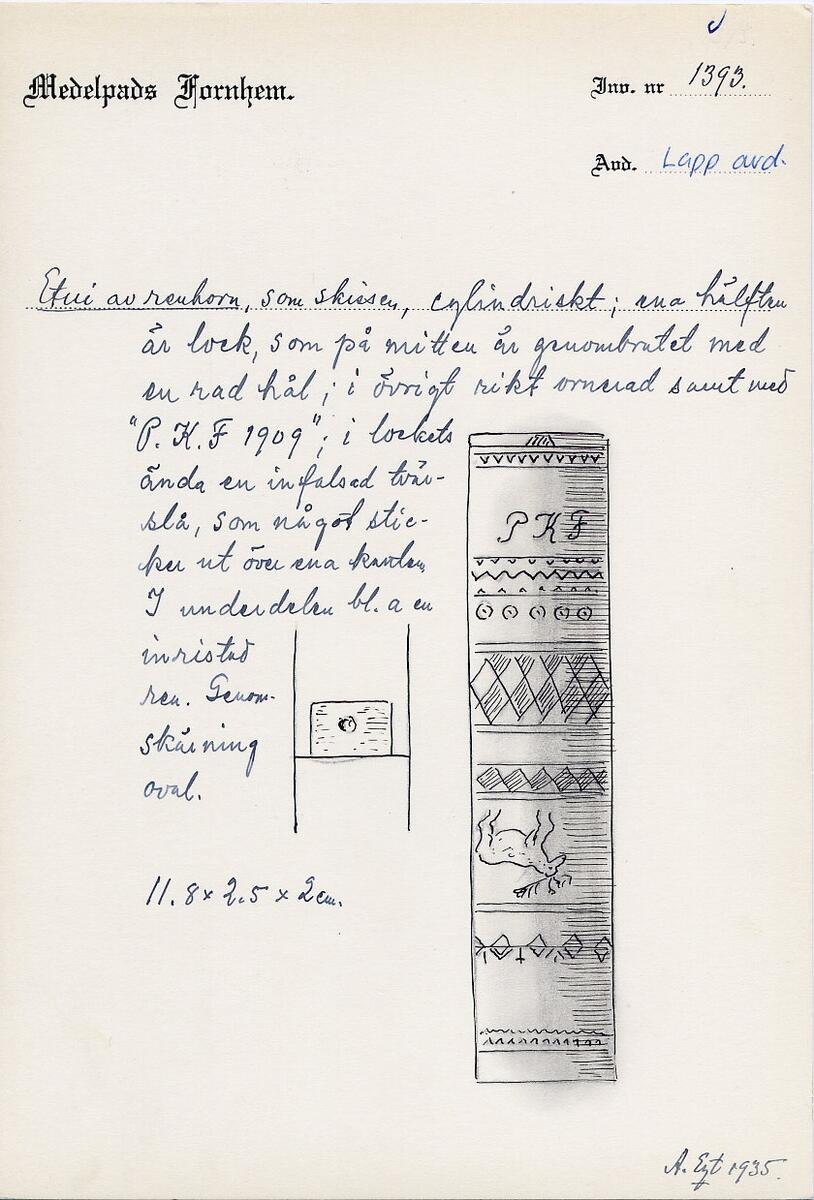 Medelpads Fornhem.
Inv. nr 1393.
Avd. Lapp avd.
Etui av renhorn, som skissen, cylindriskt; ena hälften
är lock, som på mitten är genombrutet med
en rad hål; i övrigt rikt ornerad samt med
"P. K. F 1909"; i lockets
ända en infalsad tvär-
slå, som något stic-
ker ut över ena kanten.
I underdelen bl. a en
inristad
ren. Genom-
skärning
oval.
11.8 x 2.5 x 2 cm.
P K F
A. 1935.